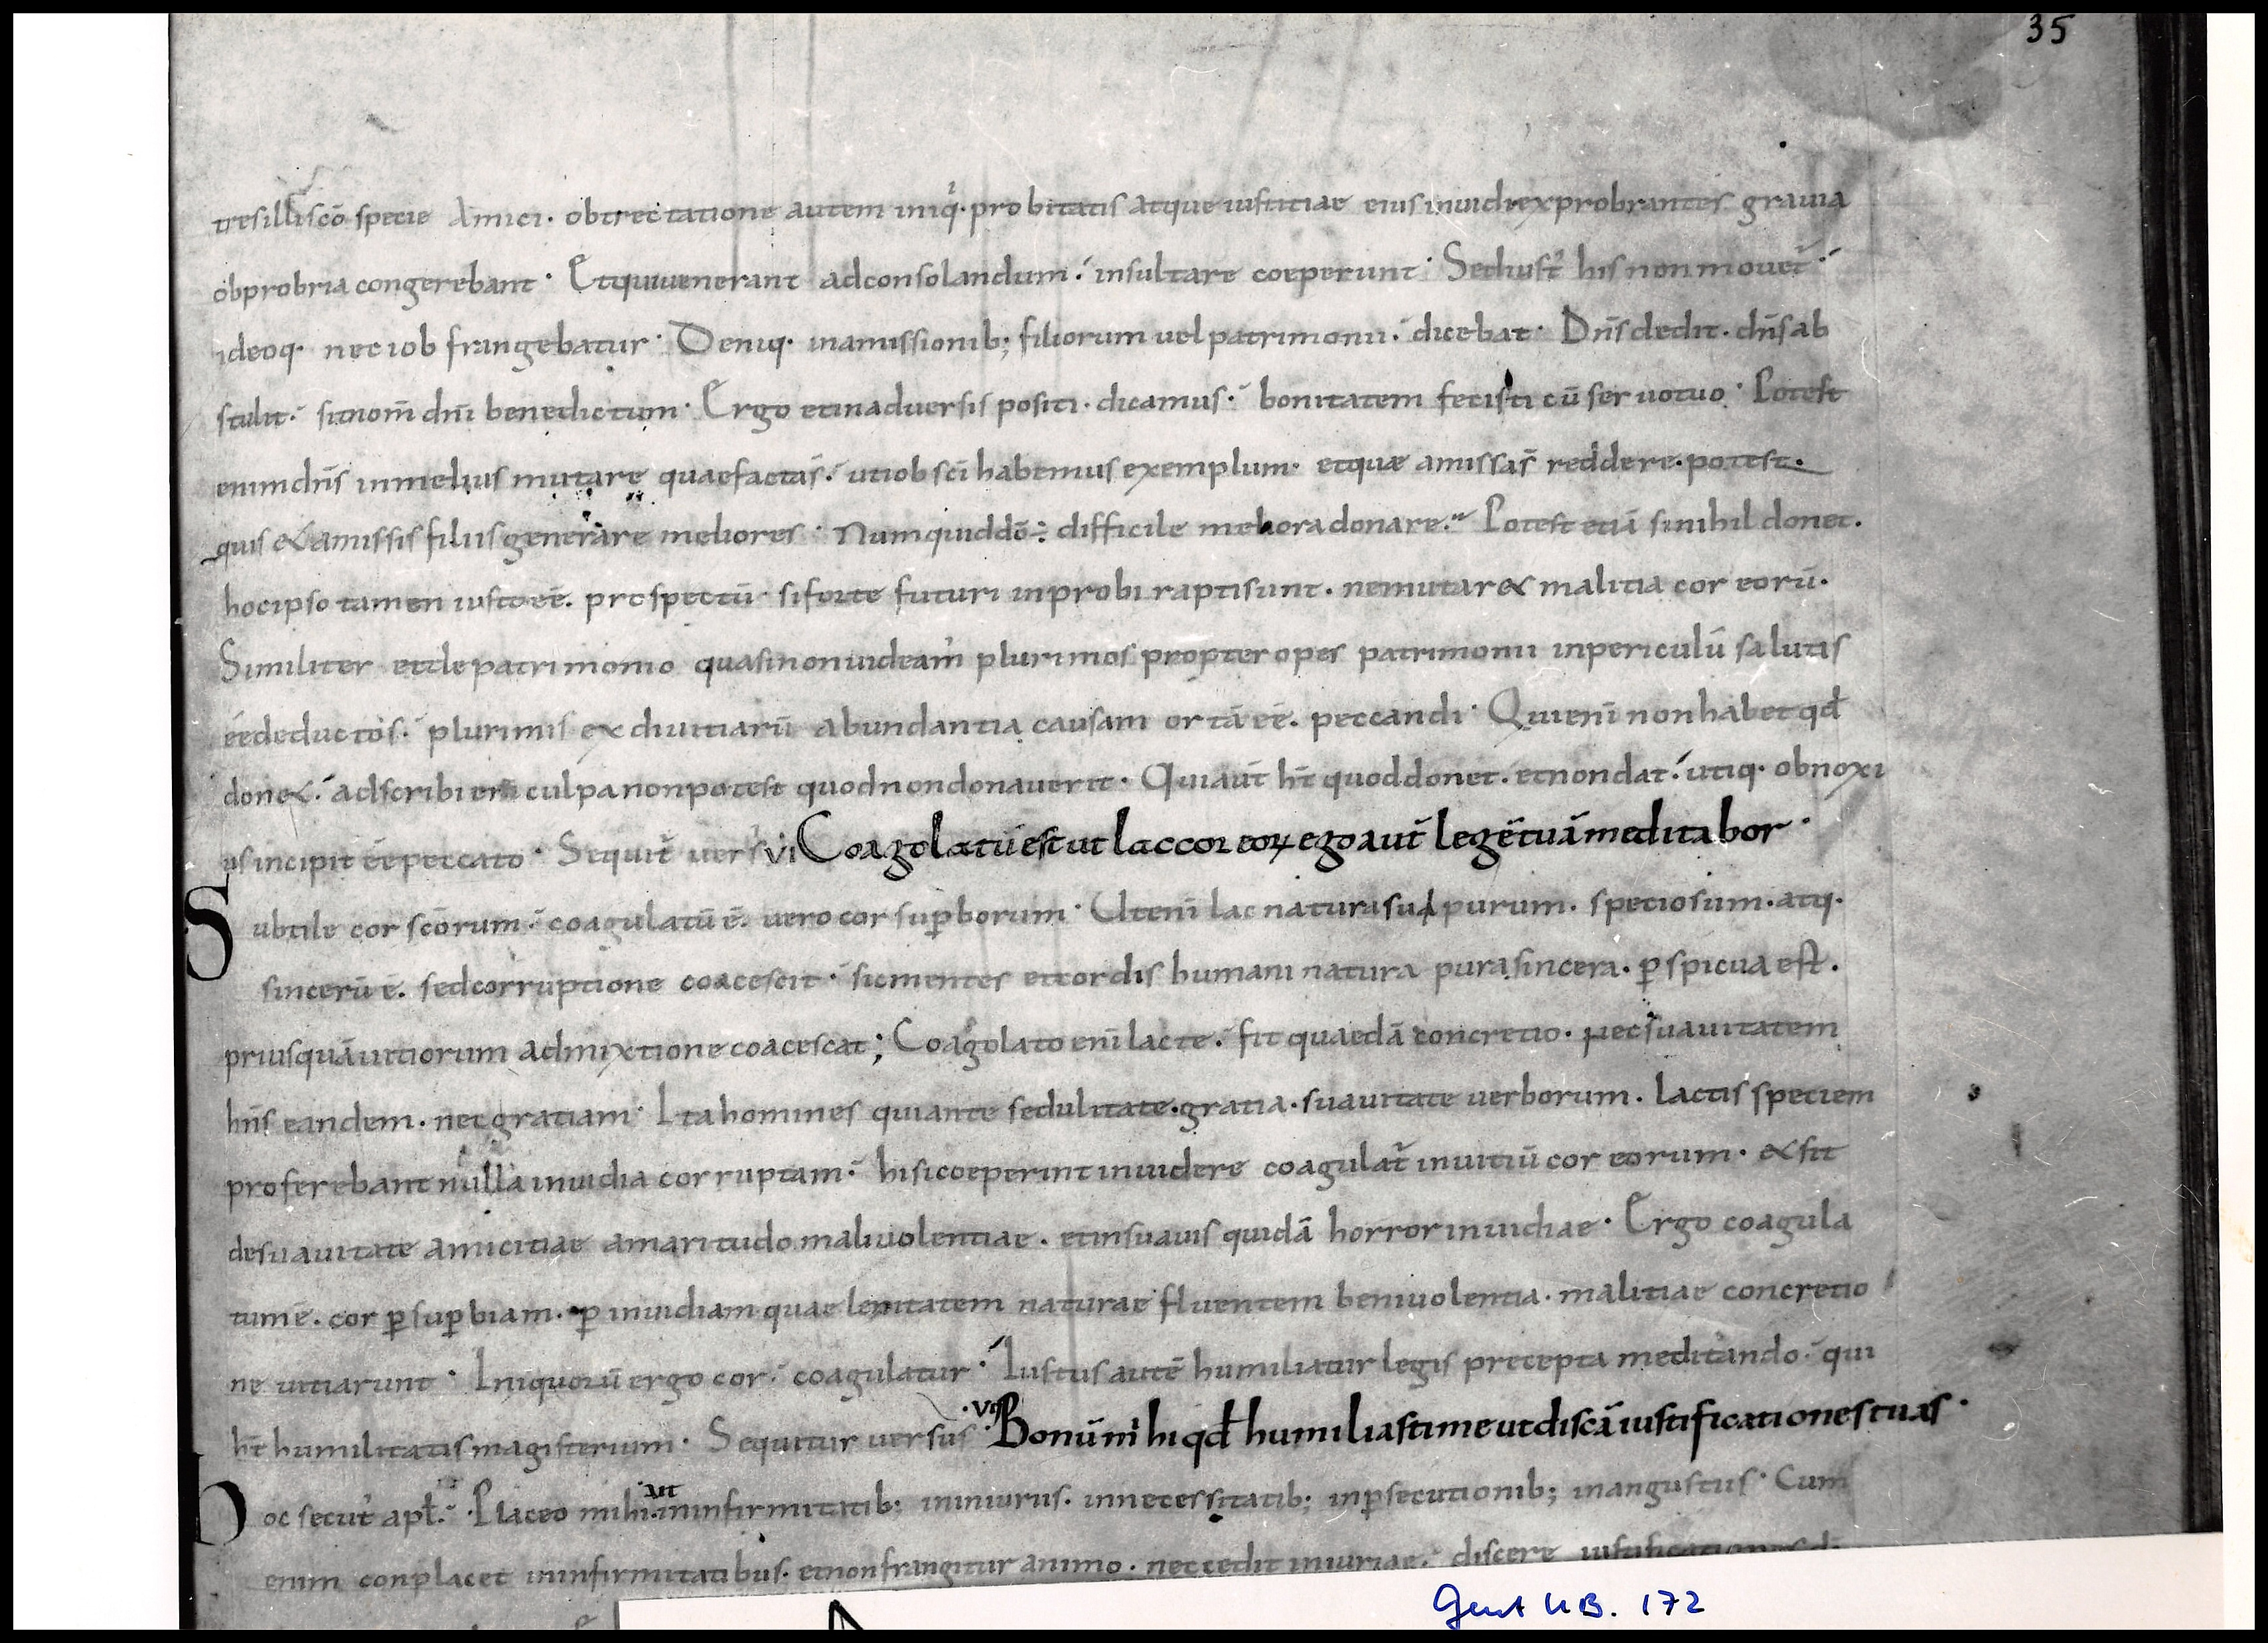 35
tres illi sc̄o specie Amici· obtrectatione autem iniq· probitatis atque iustitiae eius inuidi exprobrantes grauia
obprobria congerebant· Et qui uenerant ad consolandum·́ insultare coeperunt· Sed iust᷒ his non mouet̄·́
ideoq· nec iob frangebatur· Deniq· in amissionib; filiorum uel patrimonii·́ dicebat· Dn̄s dedit· dn̄s ab
stulit·́ sit nom̄ dn̄i benedictum· Ergo et in aduersis positi· dicamus·́ bonitatem fecisti cū seruo tuo· Potest
enim dn̄s in melius mutare quae facta s̄·́ ut iob sc̄i habemus exemplum· et quæ amissa s̄ reddere· potest·
quis & amissis filiis generare meliores· Numquid dō ÷ difficile meliora donare· Potest etiā si nihil donet·
hoc ipso tamen iusto eē· prospectū· si forte futuri inprobi rapti sunt· ne mutar& malitia cor eorū·
Similiter et de patrimonio quasi non uideam᷒ plurimos propter opes patrimonii in periculū salutis
eē deductos·́ plurimis ex diuitiarū abundantia causam ortā eē· peccandi· Qui enī non habet qd̄
don&·́ adscribi ei culpa non potest quod non donauerit· Qui aūt ht̄ quod donet· et non dat·́ utiq· obnoxi
us incipit eē peccato· Sequit̄ uers᷒ vi Coagolatū est ut lac cor eoꝝ ego aūt legē tuā meditabor·
Subtile cor scōrum·́ coagulatū ē· uero cor suꝑborum· Ut enī lac natura sua purum· speciosum· atq·
sincerū ē· sed corruptione coacescit·́ sic mentes et cordis humani natura pura sincera· ꝑspicua est·
priusquā uitiorum admixtione coacescat; Coagolato enī lacte·́ fit quaedā concretio· nec suauitatem
hn̄s eandem· nec gratiam· Ita homines qui ante sedulitate· gratia· suauitate uerborum· lactis speciem
proferebant nulla inuidia corruptam·́ hi si coeperint inuidere coagulat̄ in uitiū cor eorum· & fit
de suauitate amicitiae amaritudo maliuolentiae· et insuauis quidā horror inuidiae· Ergo coagula
tum ē· cor ꝑ suꝑbiam· ꝑ inuidiam quae lenitatem naturae fluentem beniuolentia· malitiae concretio
ne uitiarunt· Iniquorū ergo cor·́ coagulatur· Iustus autē humiliatur legis precepta meditando·́ qui
ht̄ humilitatis magisterium· Sequitur uersus· vii Bonū m̄hi qd̄ humiliasti me ut discā iustificationes tuas·
Hoc secut᷒ apl̄·́ Placeo mihi in infirmitatib; in iniuriis· in necessitatib; in ꝑsecutionib; in angustiis· Cum
enim conplacet in infirmitatibus· et non frangitur animo· nec cedit iniuriae·́ discere iustificationes dī
Gent UB. 172